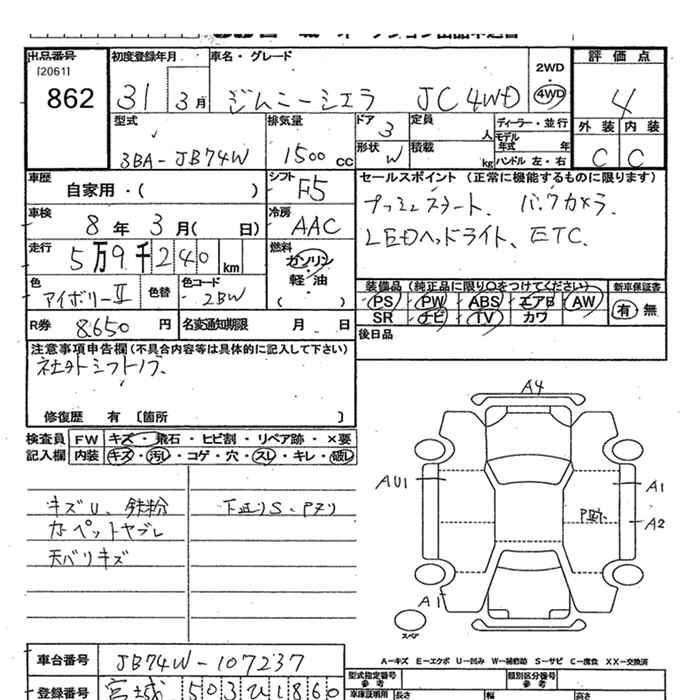 出品番号 初度登録年月 車名・グレード 2WD 4WD 評価点
[2061]
862 31年 3月 ジムニーシエラ JC 4WD 4
型式 排気量 ドア 定員 ディーラー・並行 外装 内装
3BA-JB74W 1500cc 3 人 モデル年式 年 C C
形状 W 積載 kg ハンドル 左・右
車歴 自家用・( ) シフト F5 セールスポイント (正常に機能するものに限ります)
車検 8年 3月( 日) 冷房 AAC プッシュスタート、バックカメラ
走行 5万9千240km 燃料 ガソリン LEDヘッドライト、ETC
軽油
( )
色 アイボリーⅡ 色替 色コード 2BW 装備品(純正品に限り○をつけてください) 新車保証書
PS PW ABS エアB AW 有 無
R券 8650円 名変通知期限 月 日 SR ナビ TV カワ
後日品
注意事項申告欄(不具合内容等は具体的に記入して下さい)
社外シフトノブ
修復歴 有 〔箇所 〕
検査員 FW キズ・飛石・ヒビ割・リペア跡・×要
記入欄 内装 キズ・汚レ・コゲ・穴・スレ・キレ・破レ
A4
キズU、鉄粉 下廻りS・Pヌリ AU1 A1
カーペットヤブレ A2
天バリキズ
A1
スペア
A-キズ E-エクボ U-凹み W-補修跡 S-サビ C-腐食 XX-交換済
車台番号 JB74W-107237 型式指定番号 参考 類別区分番号 参考
登録番号 宮城 503 ひ 1860 車庫証明用 長さ 幅 高さ